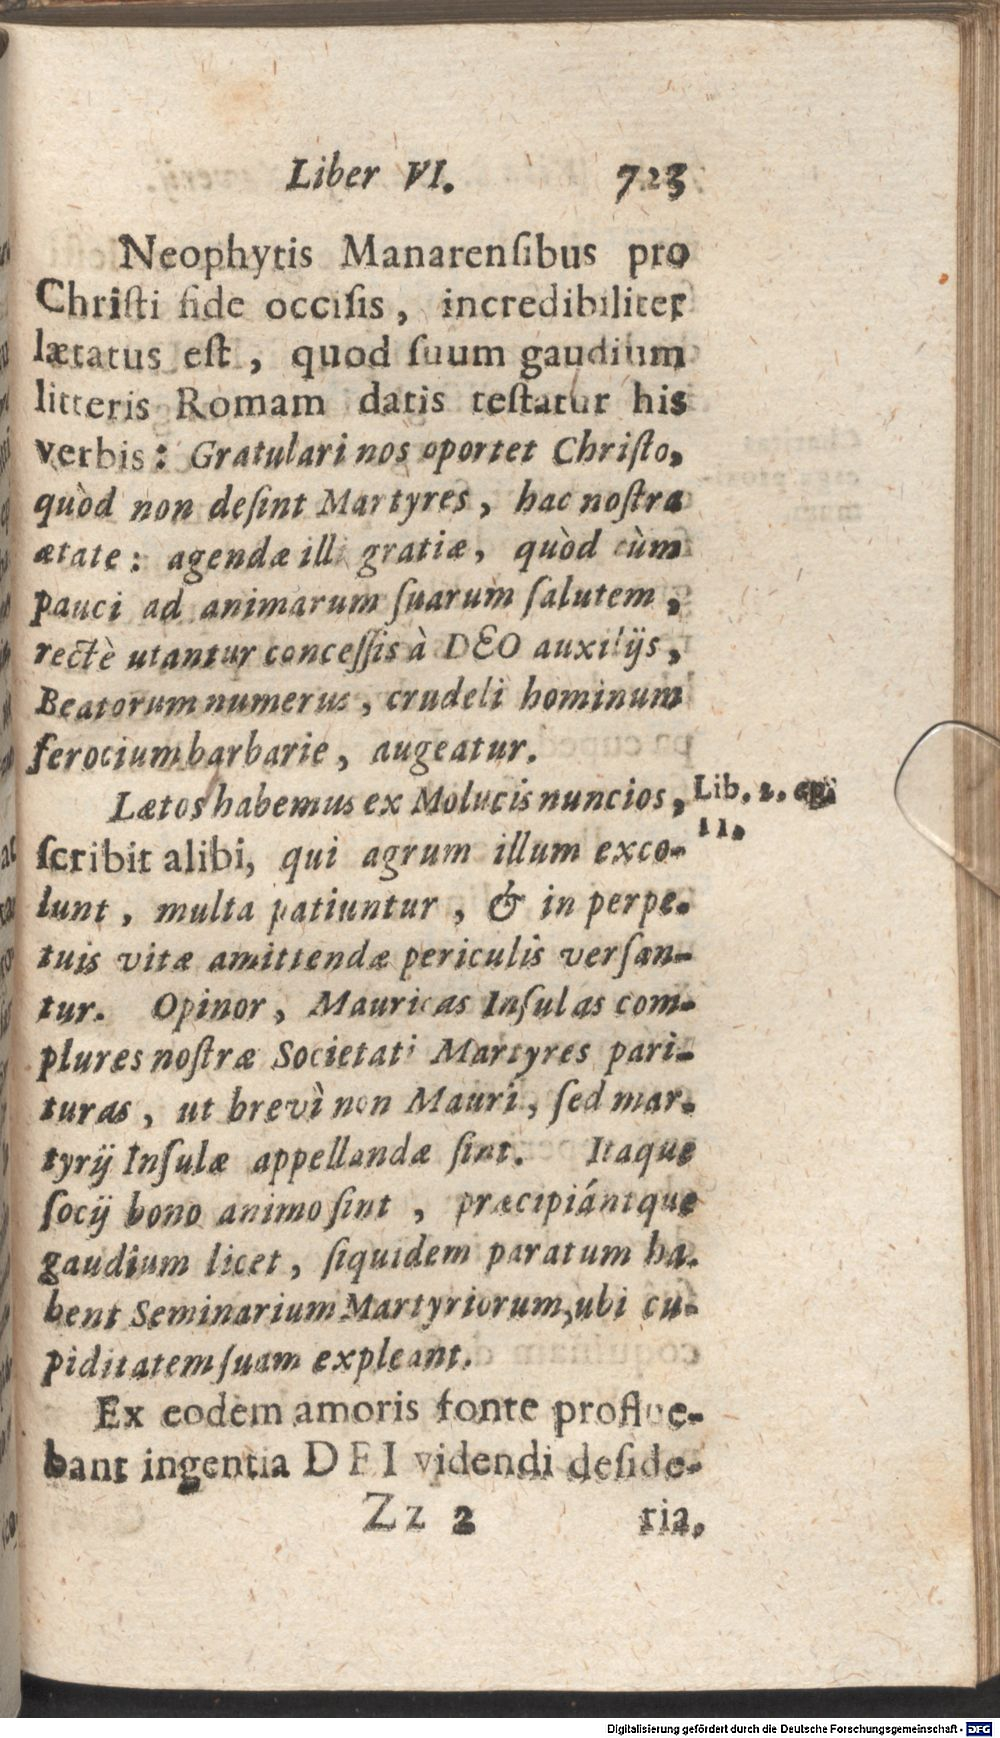 Liber VI. 723
Neophytis Manarensibus pro
Christi fide occisis, incredibiliter
lætatus est, quod suum gaudium
litteris Romam datis testatur his
verbis: Gratulari nos oportet Christo,
quòd non desint Martyres, hac nostra
ætate: agendæ illi gratiæ, quòd cùm
pauci ad animarum suarum salutem,
rectè utantur concessis à DEO auxilijs,
Beatorum numerus, crudeli hominum
ferocium barbarie, augeatur.
Lætos habemus ex Molucis nuncios, Lib. 2. ep.
11.
scribit alibi, qui agrum illum exco-
lunt, multa patiuntur, & in perpe-
tuis vitæ amittendæ periculis versan-
tur. Opinor, Mauricas Insulas com-
plures nostræ Societati Martyres pari-
turas, ut brevì non Mauri, sed mar-
tyrij Insulæ appellandæ sint. Itaque
socij bono animo sint, præcipiántque
gaudium licet, siquidem paratum ha-
bent Seminarium Martyriorum, ubi cu-
piditatem suam expleant.
Ex eodem amoris fonte proflue-
bant ingentia DEI videndi deside-
Zz 2 ria.
Digitalisierung gefördert durch die Deutsche Forschungsgemeinschaft - DFG